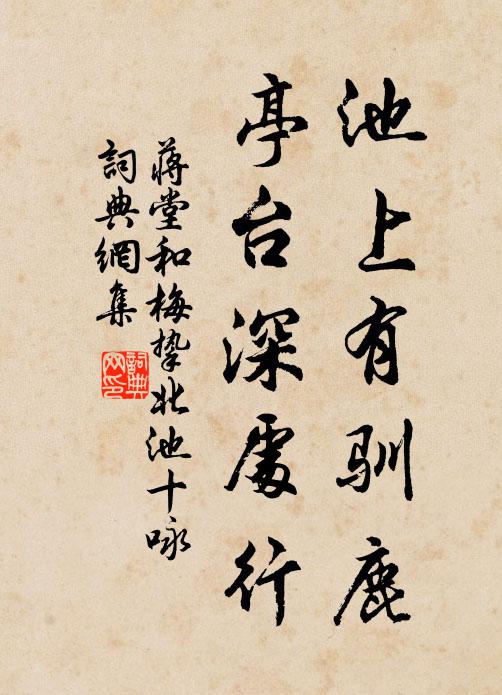 池上有驯鹿
亭台深處行
蔣堂和梅挚北池十咏
詞典網集
詞典网印